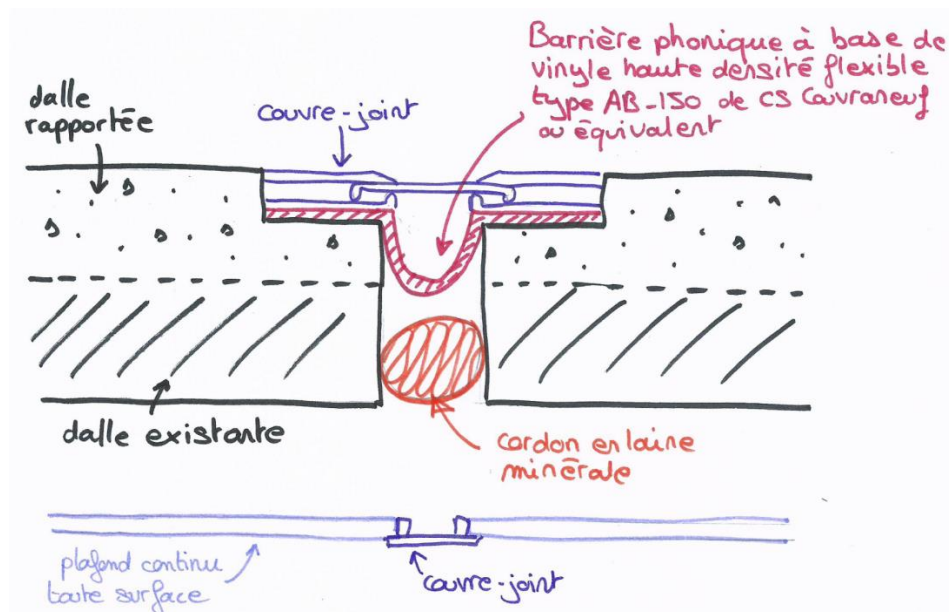 Barrière phonique à base de
vinyle haute densité flexible
type AB-150 de CS Couvraneuf
ou équivalent
dalle
rapportée
couvre-joint
dalle existante
cordon en laine
minérale
plafond continu
toute surface
couvre-joint